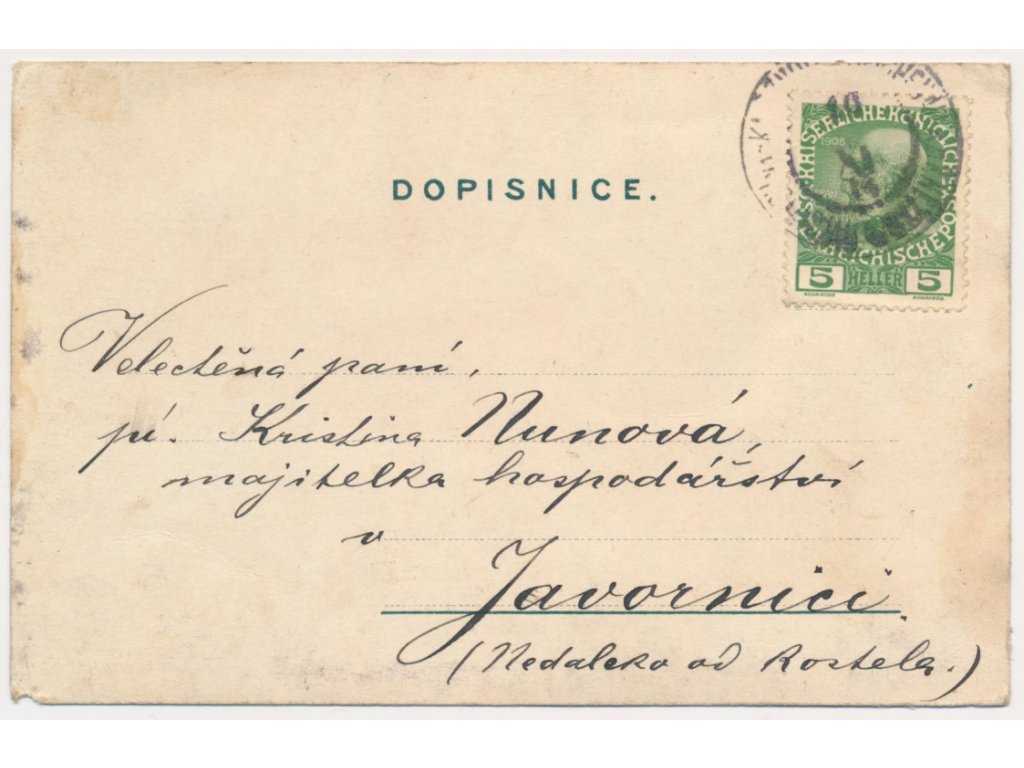 DOPISNICE.
KAISERLICHE KÖNIGLICHE
ÖSTERREICHISCHE POST
1908
5 HELLER 5
10
V
11
Velectěná paní,
pí. Kristina Nunová,
majitelka hospodářství
v
Javornici
(Nedaleko od kostela.)